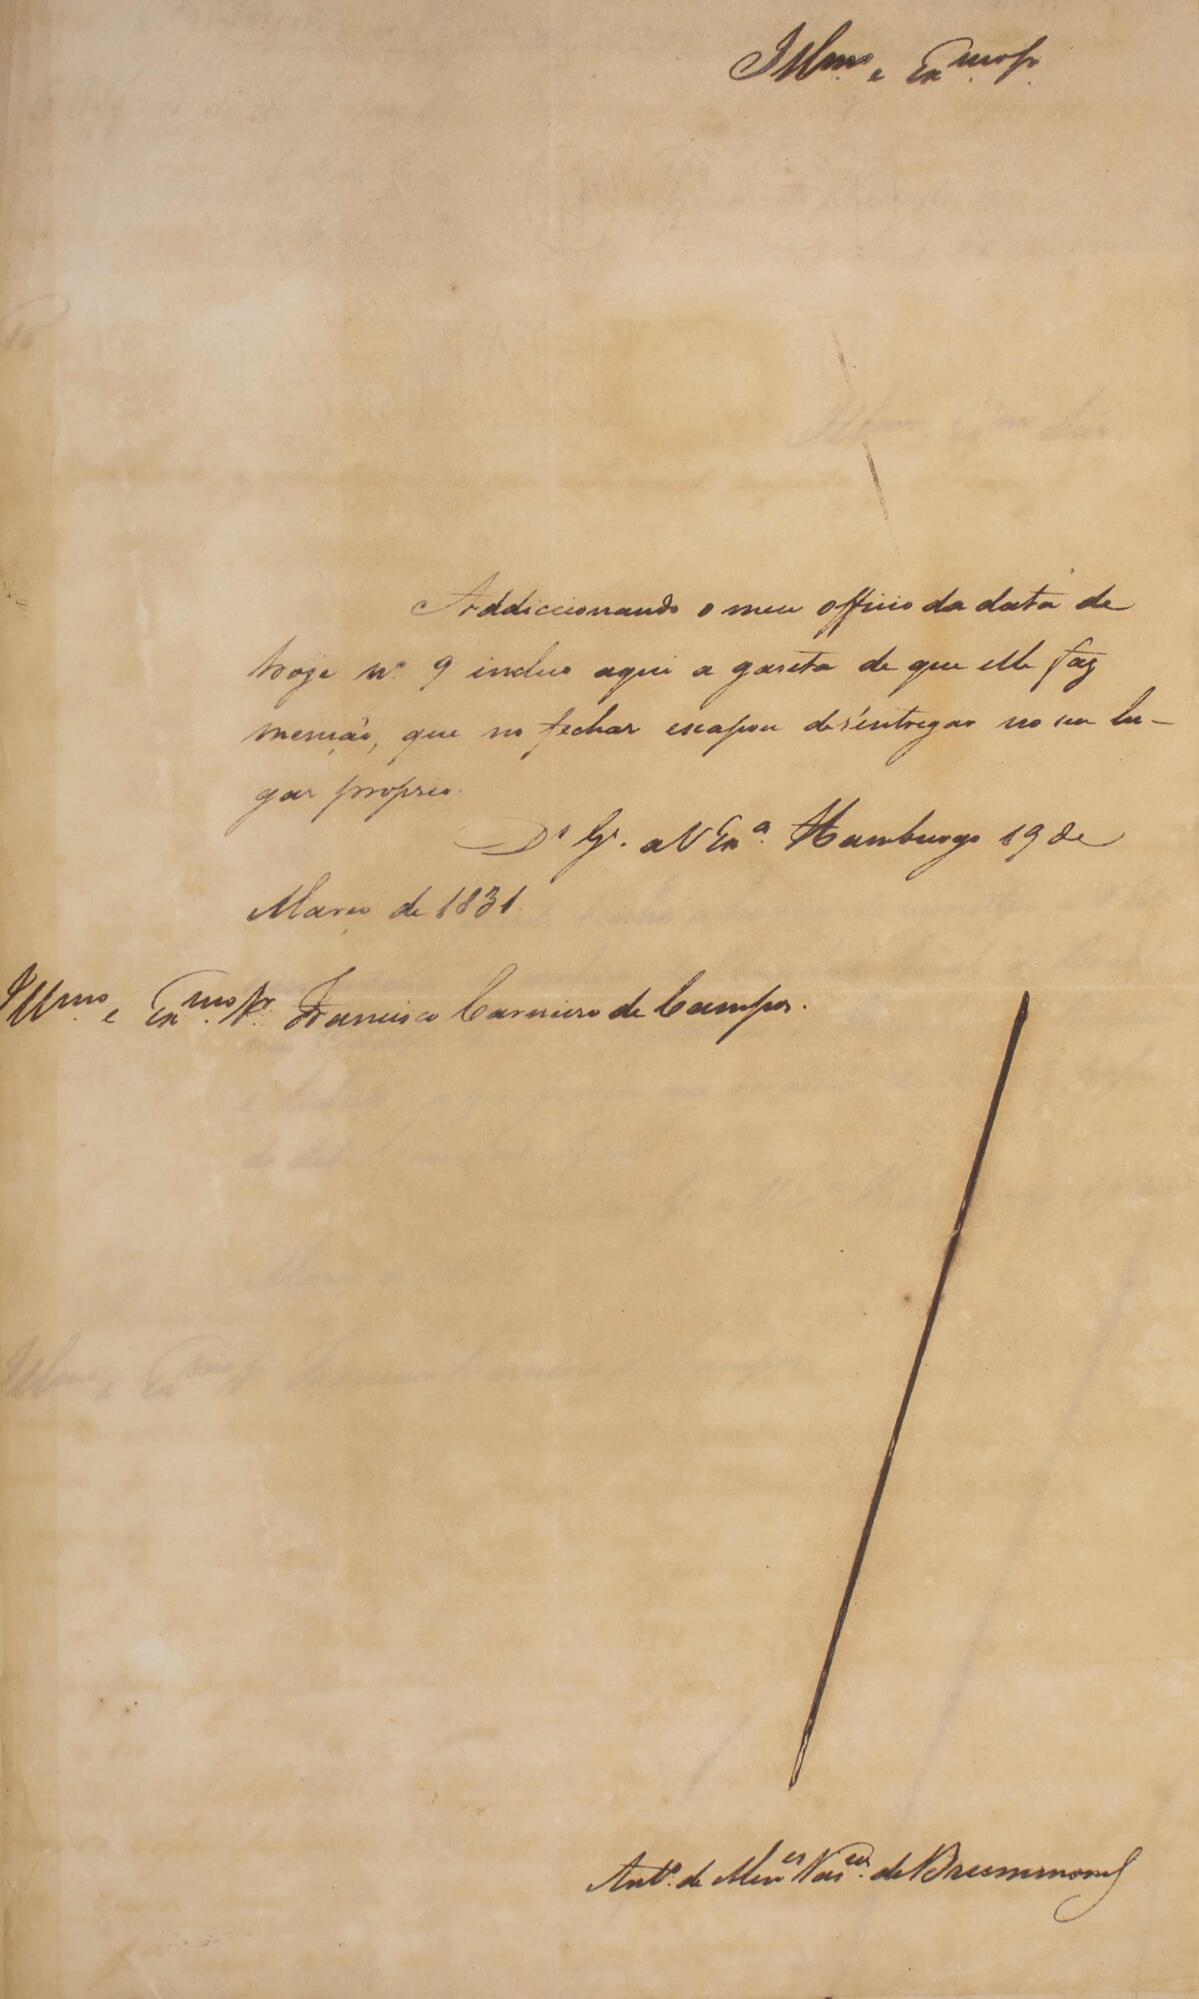 Illmo. e Exmo. Sr.
Addiccionando o meu officio da data de
hoje nº 9 incluo aqui a gaseta de que elle faz
menção, que no fechar escapou des'entregar no seu lu-
gar proprio.
Ds. Ge. a V Exa. Hamburgo 19 de
Março de 1831.
Illmo. e Exmo. Sr. Francisco Carneiro de Campos.
Anto. de Menes Vascos. de Drummond